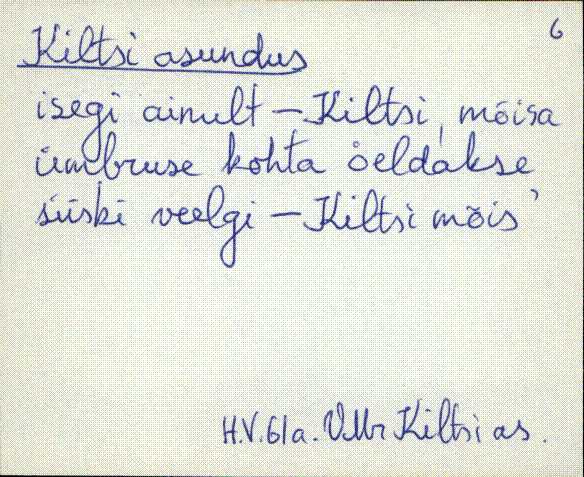 6
Kiltsi asundus
isegi ainult – Kiltsi, mõisa
ümbruse kohta öeldakse
siiski veelgi – Kiltsi mõis’
H.V. 61a. VMr Kiltsi as.